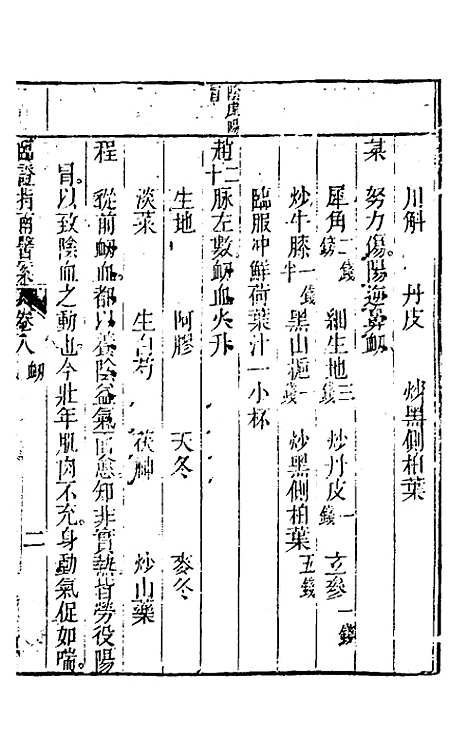 川斛　丹皮　炒黑側柏葉
某　努力傷陽逆鼻衂
犀角二錢　細生地三錢　炒丹皮一錢　立參一錢
炒牛膝一錢半　黑山梔一錢　炒黑側柏葉五錢
臨服冲鮮荷葉汁一小杯
陰虛陽冒
趙二十　脉左數衂血火升
生地　阿膠　天冬　麥冬
淡菜　生白芍　茯神　炒山藥
程　從前衂血都以養陰益氣而愈知非實熱皆勞役陽
冒以致陰血之動也今壯年肌肉不充身動氣促如喘
臨證指南醫案　卷八　衂　二